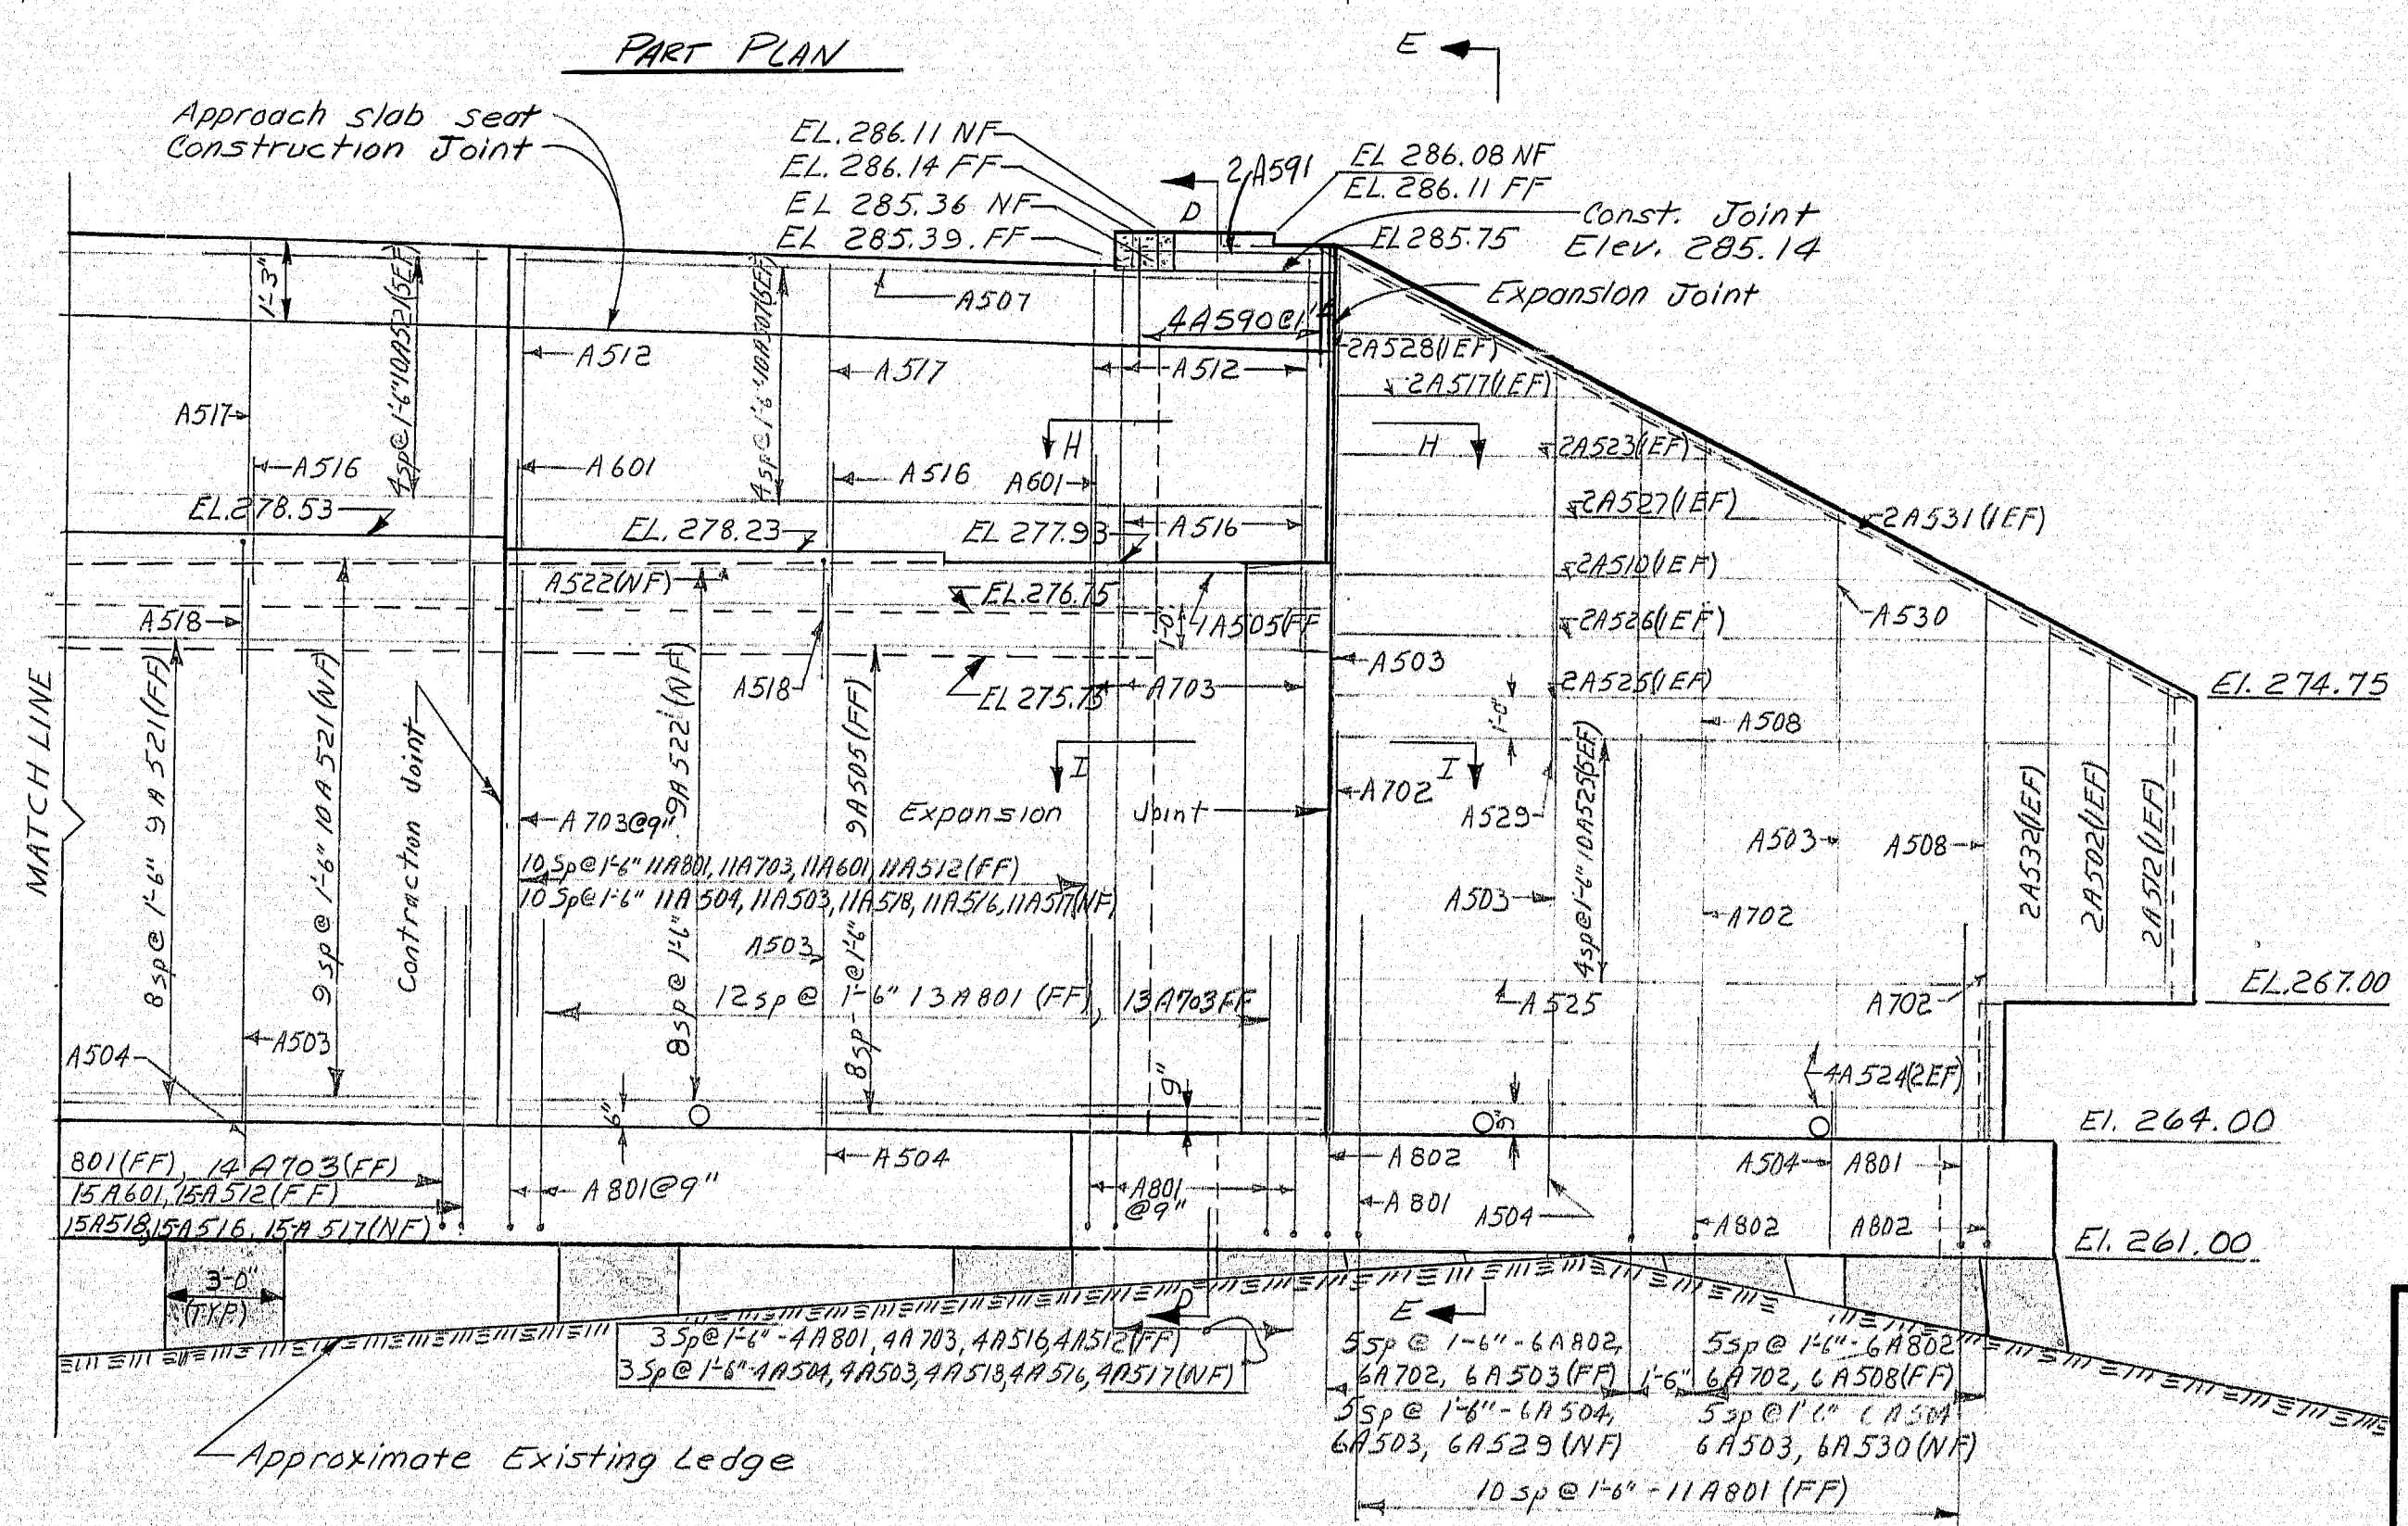 PART PLAN
E
Approach slab seat
Construction Joint
EL. 286.11 NF
EL. 286.14 FF
EL 285.36 NF
EL 285.39. FF
2A591
D
EL 286.08 NF
EL. 286.11 FF
EL 285.75
Const. Joint
Elev. 285.14
Expansion Joint
1'-3"
4sp@1'-6"10A521(5EF)
A507
4A590@1'
A512
A517
A512
2A528(1EF)
2A517(1EF)
A517
A516
A601
A516
A601
H
H
2A523(1EF)
2A527(1EF)
2A531(1EF)
EL.278.53
EL. 278.23
EL 277.93
A516
2A510(1EF)
A522(NF)
EL.276.75
1'-0"
1A505(FF
A518
2A526(1EF)
A530
A503
2A525(1EF)
1'-0"
El. 274.75
A518
EL 275.75
A703
A508
MATCH LINE
8sp@ 1'-6" 9A521(FF)
9sp@ 1'-6" 10A521(NF)
Contraction Joint
8sp@ 1'-6" 9A522(NF)
9A505(FF)
8sp-@1'-6"
I
I
A702
A529
4sp@1'-6" 10A525(5EF)
2A532(1EF)
2A502(1EF)
2A512(1EF)
A703@9"
Expansion Joint
A503
A508
10 Sp@1'-6" 11A801, 11A703, 11A601, 11A512(FF)
10 Sp@1'-6" 11A504, 11A503, 11A518, 11A516, 11A517(NF)
A503
A702
A503
12 sp @ 1'-6" 13A801 (FF), 13A703FF
A525
A702
EL.267.00
A504
A503
6"
9"
9"
4A524(2EF)
El. 264.00
801(FF), 14A703(FF)
15A601, 15A512(FF)
15A518, 15A516, 15A517(NF)
A801@9"
A504
A801
@9"
A802
A801
A504
A504
A801
A802
A802
El. 261.00
3'-0"
(TYP.)
D
E
3 Sp@1'-6"-4A801, 4A703, 4A516, 4A512(FF)
3 Sp@1'-6"-4A504, 4A503, 4A518, 4A516, 4A517(NF)
5sp @ 1'-6"-6A802,
6A702, 6A503(FF)
1'-6"
5sp @ 1'-6"-6A802
6A702, 6A508(FF)
5sp @ 1'-6"-6A504,
6A503, 6A529(NF)
5sp @1'-6" 6A504
6A503, 6A530(NF)
10 sp @ 1'-6" - 11A801 (FF)
Approximate Existing Ledge